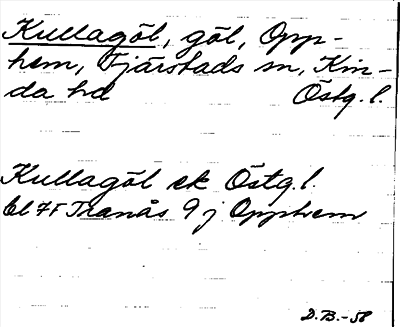 Kullagöl, göl, Opp-
hem, Tjärstads sn, Kin-
da hd Östg. l.
Kullagöl ek Östg. l.
bl 7F Tranås 9 j Opphem
D.B.-58